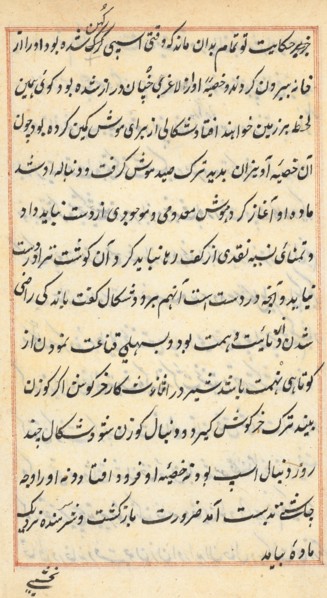 کهن
خریر حکایت تو تمام بدان ماند که وقتی اسپی گرگ شده بود او را از
خانه بیرون کردند و خصیه او از لاغری چنان دراز شده بود کوئی همین
لحظه بر زمین خواهند افتاد شکالی از برای موش کمین کرده بود چون
آن خصیه آویزان بدید ترک صید موش گرفت و دنباله او شد
ماده او آغاز کرد موش معدومی و موجودی از دست نباید داد
و تمنای نسیه نقدی از کف رها نباید کرد آن کوشت ترا دست
نیاید و آنچه در دست است آنهم برود شکال کفت باندکی راضی
شدن از دنائت همت بود و بسهلی قناعت نمودن از
کوتاهی نهمت باشد شیر در اثنای شکار خرکوش اگر کوزن
بیند ترک خرکوش کیرد و دنبال کوزن شود شکال چند
روز دنبال اسپ بود نه خصیه او فرود افتاد و نه او را وجه
چاشتی بدست آمد ضرورت بازکشت و شرمنده نزدیک
ماده بیامد
نخشبی